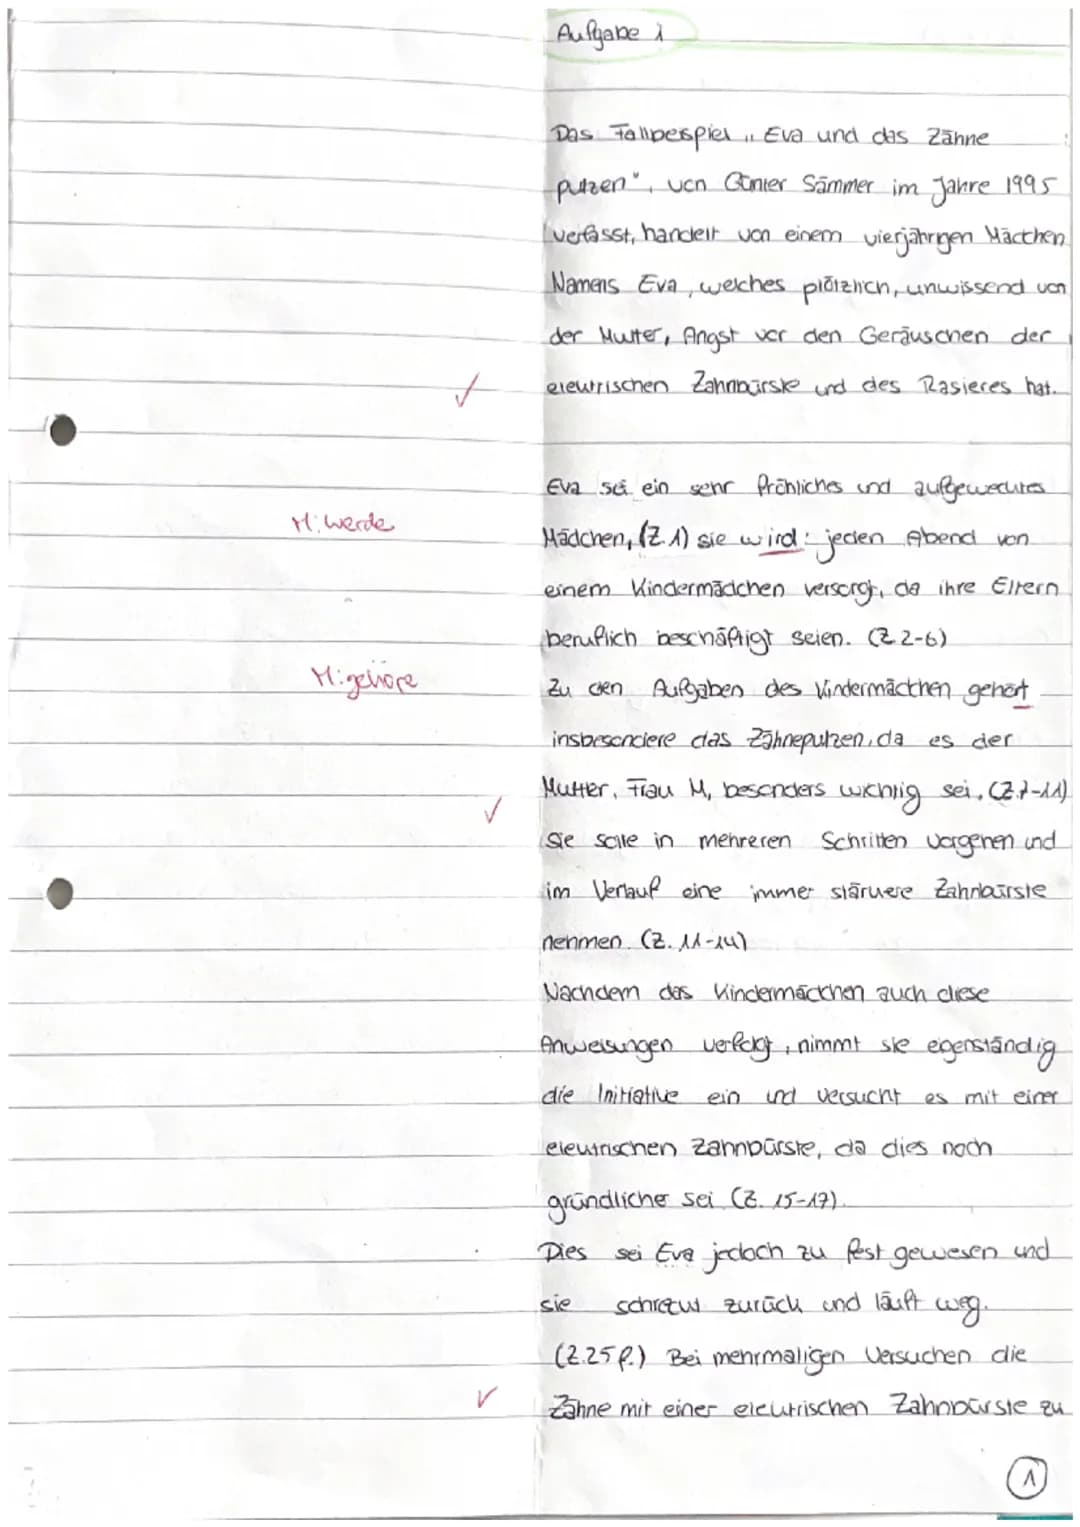 Aufgabe 1
Das Fallbeispiel „Eva und das Zähne
putzen", von Günter Sämmer im Jahre 1995
verfasst, handelt von einem vierjährigen Mädchen
Namens Eva, welches plötzlich, unwissend von
der Mutter, Angst vor den Geräuschen der
✓ elektrischen Zahnbürste und des Rasieres hat.
Eva sei ein sehr fröhliches und aufgewecktes
M: werde Mädchen, (Z.1) sie wird jeden Abend von
einem Kindermädchen versorgt, da ihre Eltern
beruflich beschäftigt seien. (Z 2-6)
M: gehöre Zu den Aufgaben des Kindermädchen gehört
insbesondere das Zähneputzen, da es der
Mutter, Frau M, besonders wichtig sei. (Z.7-11)
✓ Sie solle in mehreren Schritten vorgehen und
im Verlauf eine immer stärkere Zahnbürste
nehmen (Z. 11-14)
Nachdem das Kindermädchen auch diese
Anweisungen verfolgt, nimmt sie eigenständig
die Initiative ein und versucht es mit einer
elektrischen Zahnbürste, da dies noch
gründlicher sei (Z. 15-17).
Dies sei Eva jedoch zu fest gewesen und
sie schreckt zurück und läuft weg.
(Z.25 f.) Bei mehrmaligen Versuchen die
✓ Zähne mit einer elektrischen Zahnbürste zu
1